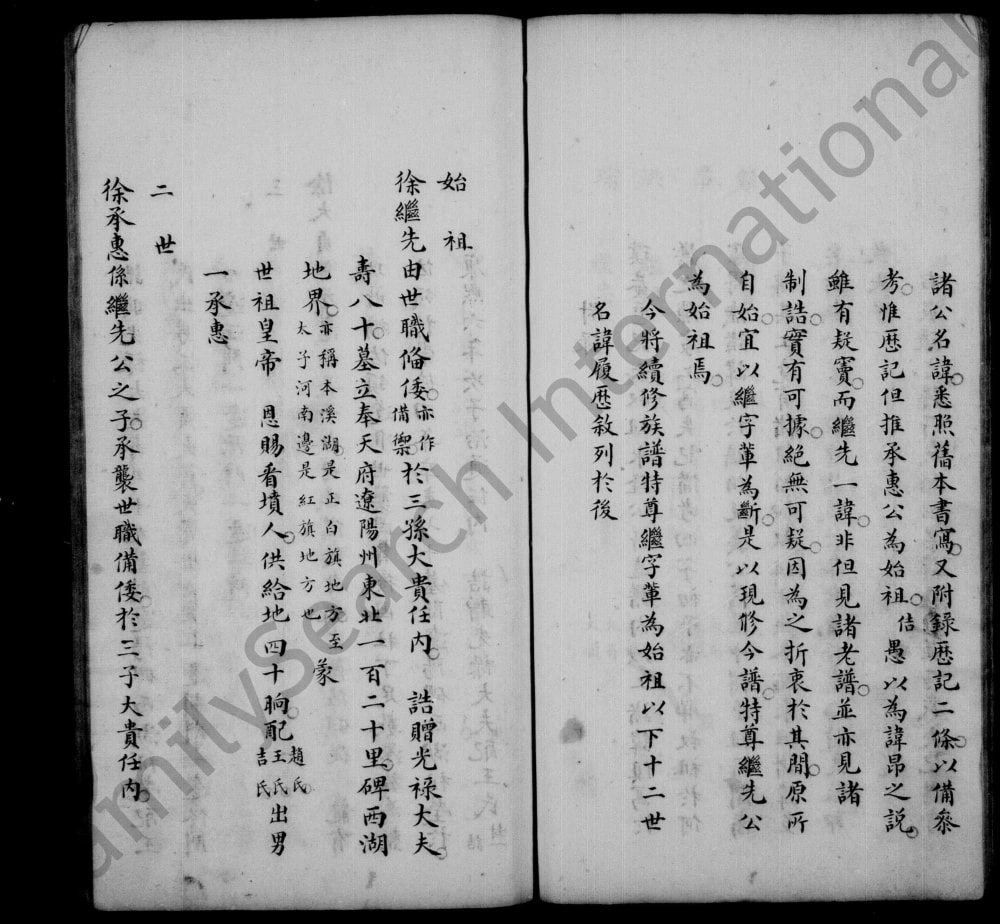 諸公名諱悉照舊本書寫又附錄歷記二條以備叅
考惟歷記但推承惠公為始祖佶愚以為諱昂之說
雖有疑竇而繼先一諱非但見諸老譜並亦見諸
制誥實有可據絕無可疑因為之折衷於其間原所
自始宜以繼字輩為斷是以現修今譜特尊繼先公
為始祖焉
今將續修族譜特尊繼字輩為始祖以下十二世
名諱履歷敘列於後
始祖
徐繼先由世職俻倭亦作備禦於三孫大貴任內 誥贈光祿大夫
壽八十墓立奉天府遼陽州東北一百二十里碑西湖
地界亦稱本溪湖是正白旗地方至太子河南邊是紅旗地方也 蒙
世祖皇帝 恩賜看墳人供給地四十晌配趙氏王氏吉氏出男
一承惠
二世
徐承惠係繼先公之子承襲世職備倭於三子大貴任內
FamilySearch International